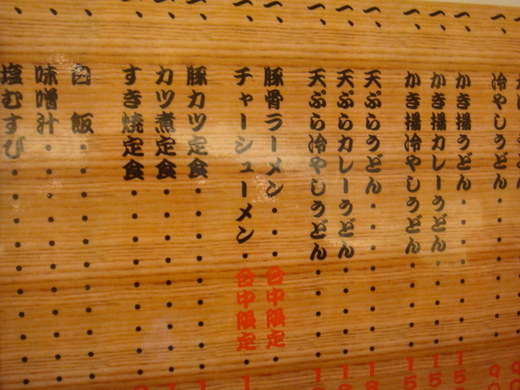 一、冷やしうどん
一、かき揚うどん
一、かき揚カレーうどん
一、かき揚冷やしうどん
一、天ぷらうどん
一、天ぷらカレーうどん
一、天ぷら冷やしうどん
一、豚骨ラーメン 台中限定
一、チャーシューメン 台中限定
一、豚カツ定食
一、カツ煮定食
一、すき焼定食
一、白飯
一、味噌汁
一、塩むすび